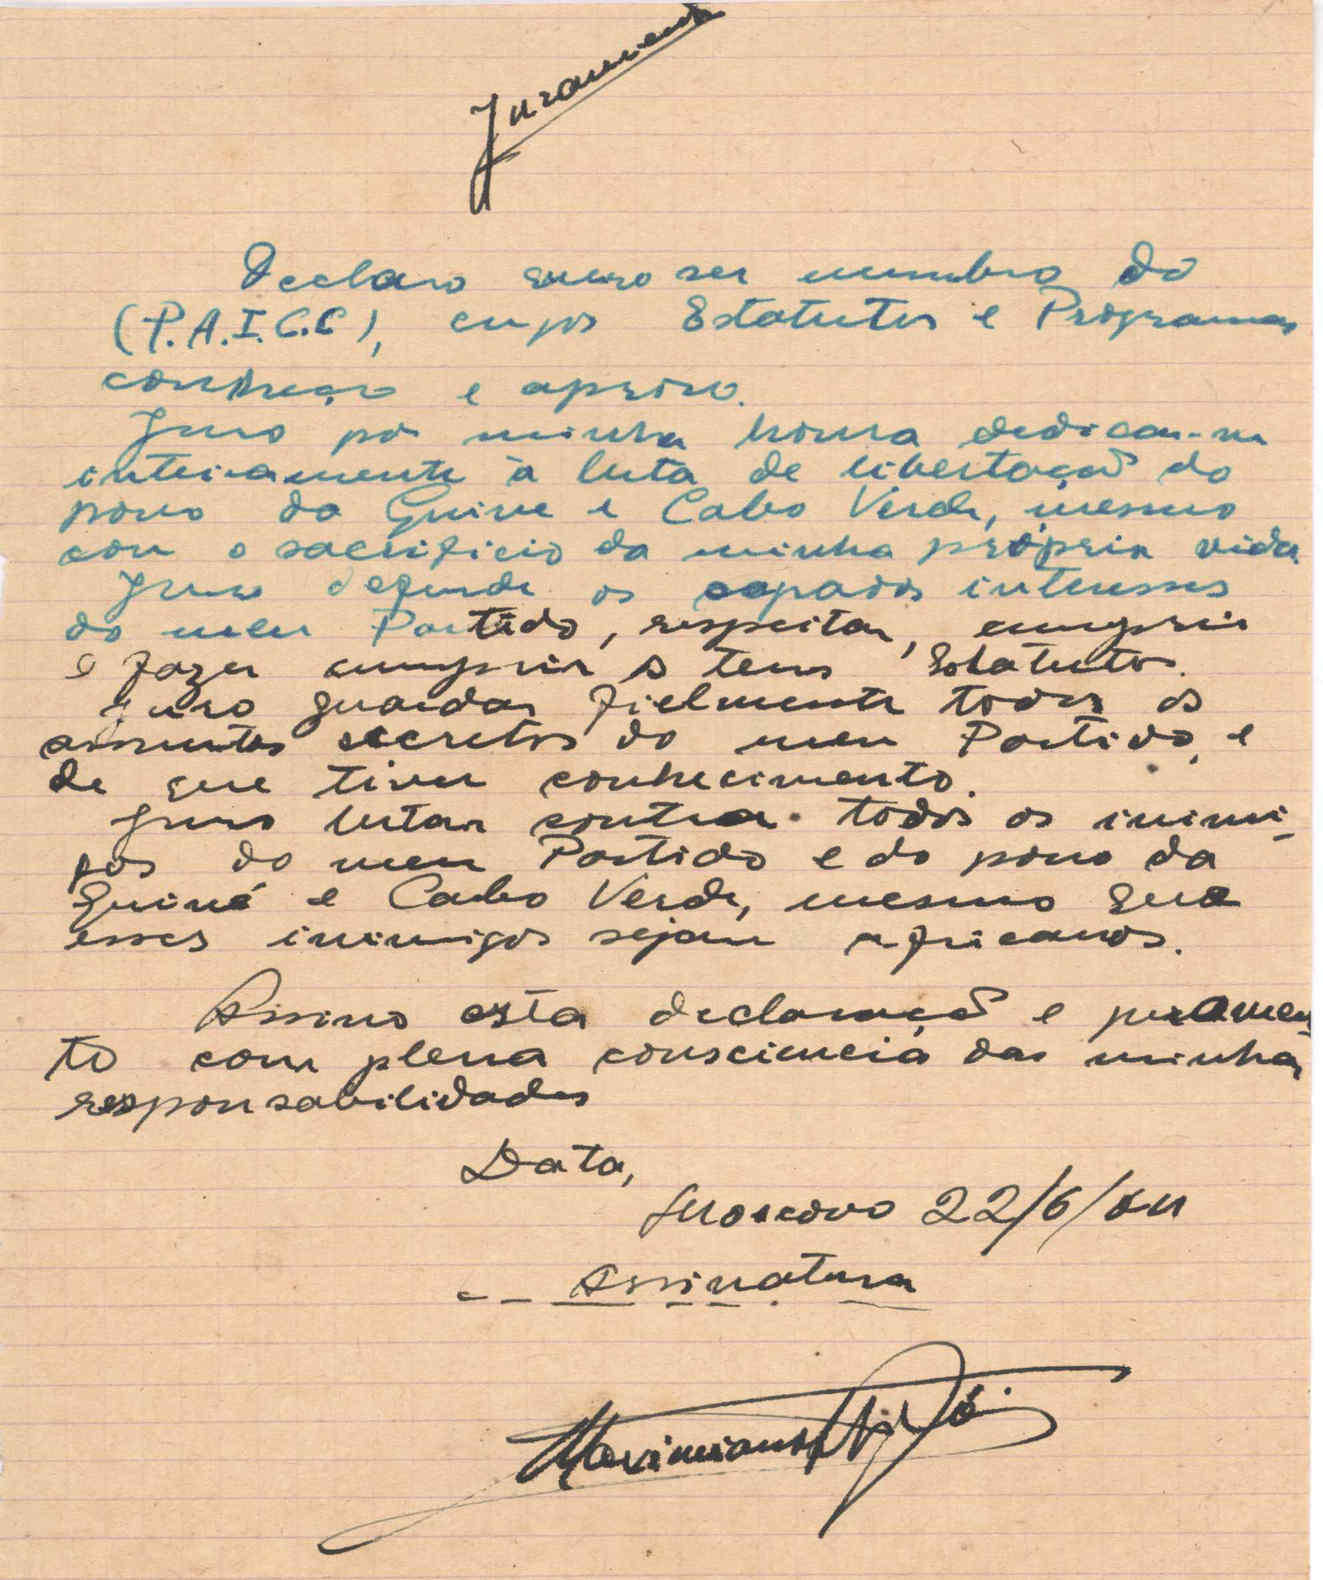 Juramento
Declaro quero ser membro do
(P.A.I.G.C), cujos Estatutos e Programas
conheço e aprovo.
Juro por minha honra dedicar-me
inteiramente à luta de libertação do
povo da Guine e Cabo Verde, mesmo
com o sacrificio da minha própria vida
Juro defender os sagrados interesses
do meu Partido, respeitar, cumprir
e fazer cumprir os seus Estatutos.
Juro guardar fielmente todos os
assuntos secretos do meu Partido, e
de que tiver conhecimento.
Juro lutar contra todos os inimi-
gos do meu Partido e do povo da
Guiné e Cabo Verde, mesmo que
esses inimigos sejam africanos.
Assino esta declaração e juramen
to com plena consciencia das minhas
responsabilidades
Data,
Moscovo 22/6/
Assinatura
Maximiano